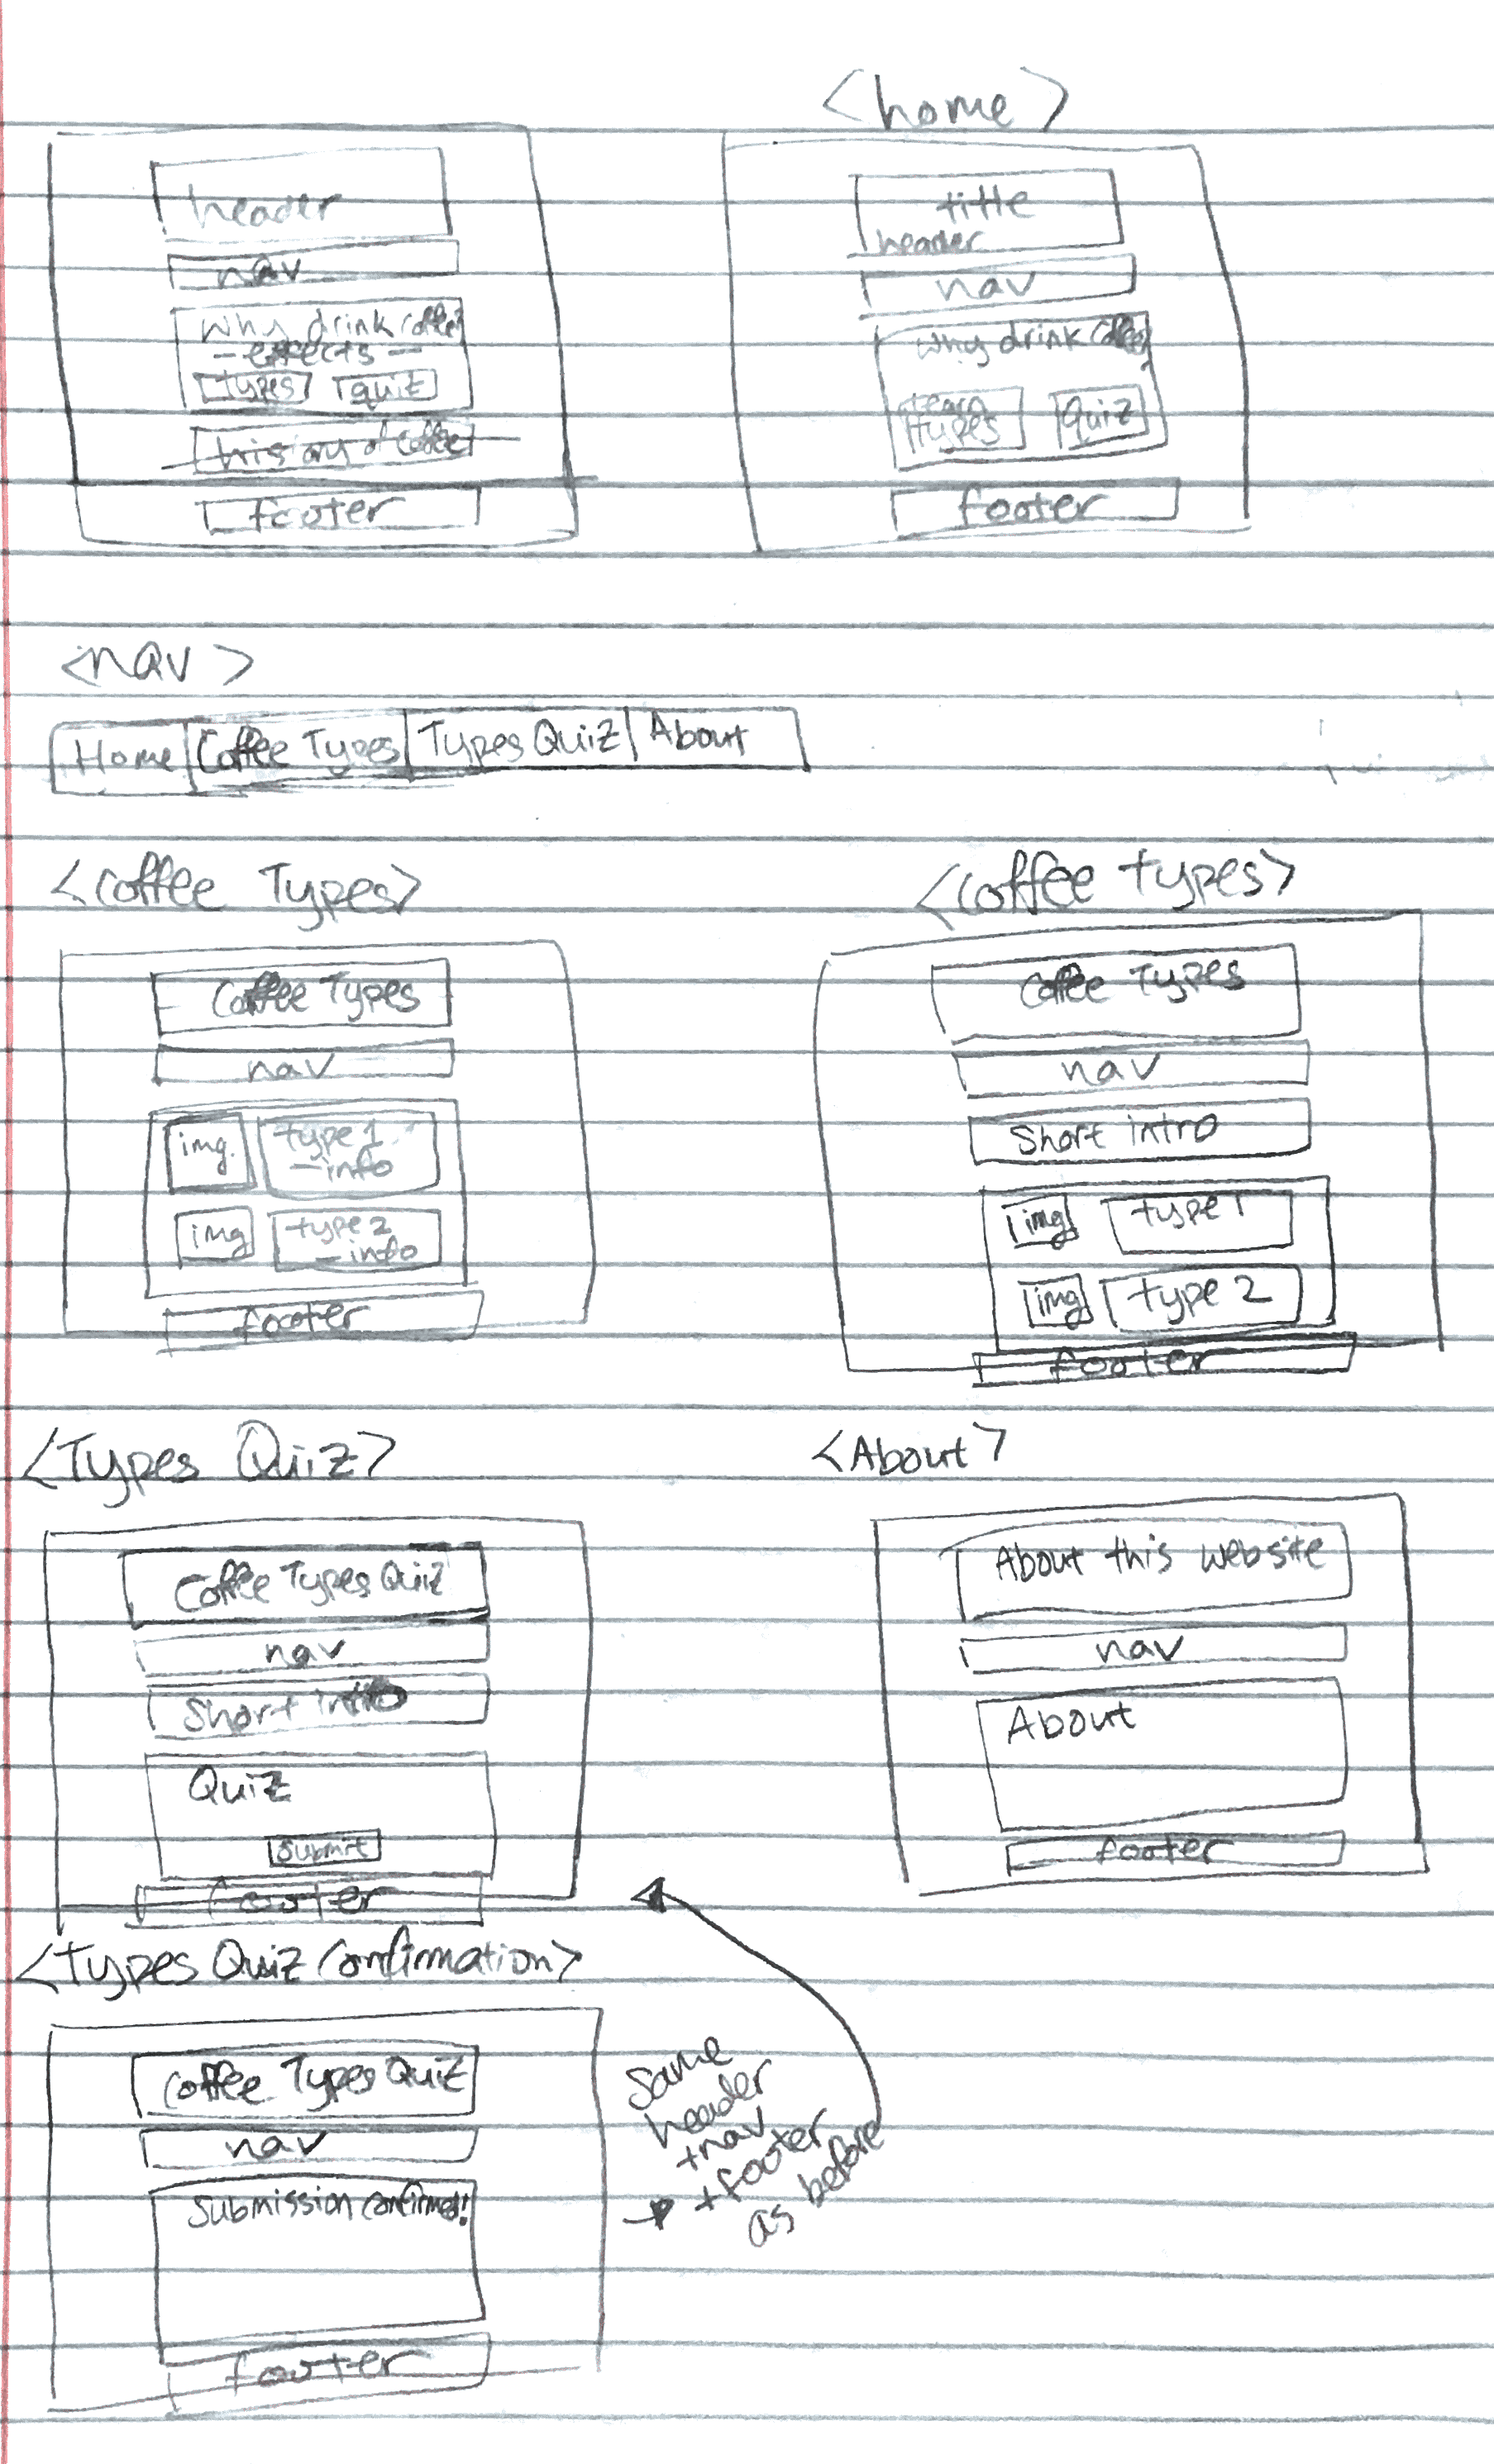 header
nav
why drink coffee
- effects -
types quiz
history of coffee
footer
<home>
title
header
nav
why drink coffee
learn
types
Quiz
footer
<nav>
Home Coffee Types Types Quiz About
<Coffee Types>
Coffee Types
nav
img. type 1
- info
img type 2
- info
footer
<Coffee types>
Coffee Types
nav
Short intro
img type 1
img type 2
footer
<Types Quiz>
Coffee Types Quiz
nav
Short intro
Quiz
Submit
footer
<About>
About this website
nav
About
footer
<Types Quiz Confirmation>
Coffee Types Quiz
nav
Submission confirmed!
footer
Same
header
+nav
+footer
as before